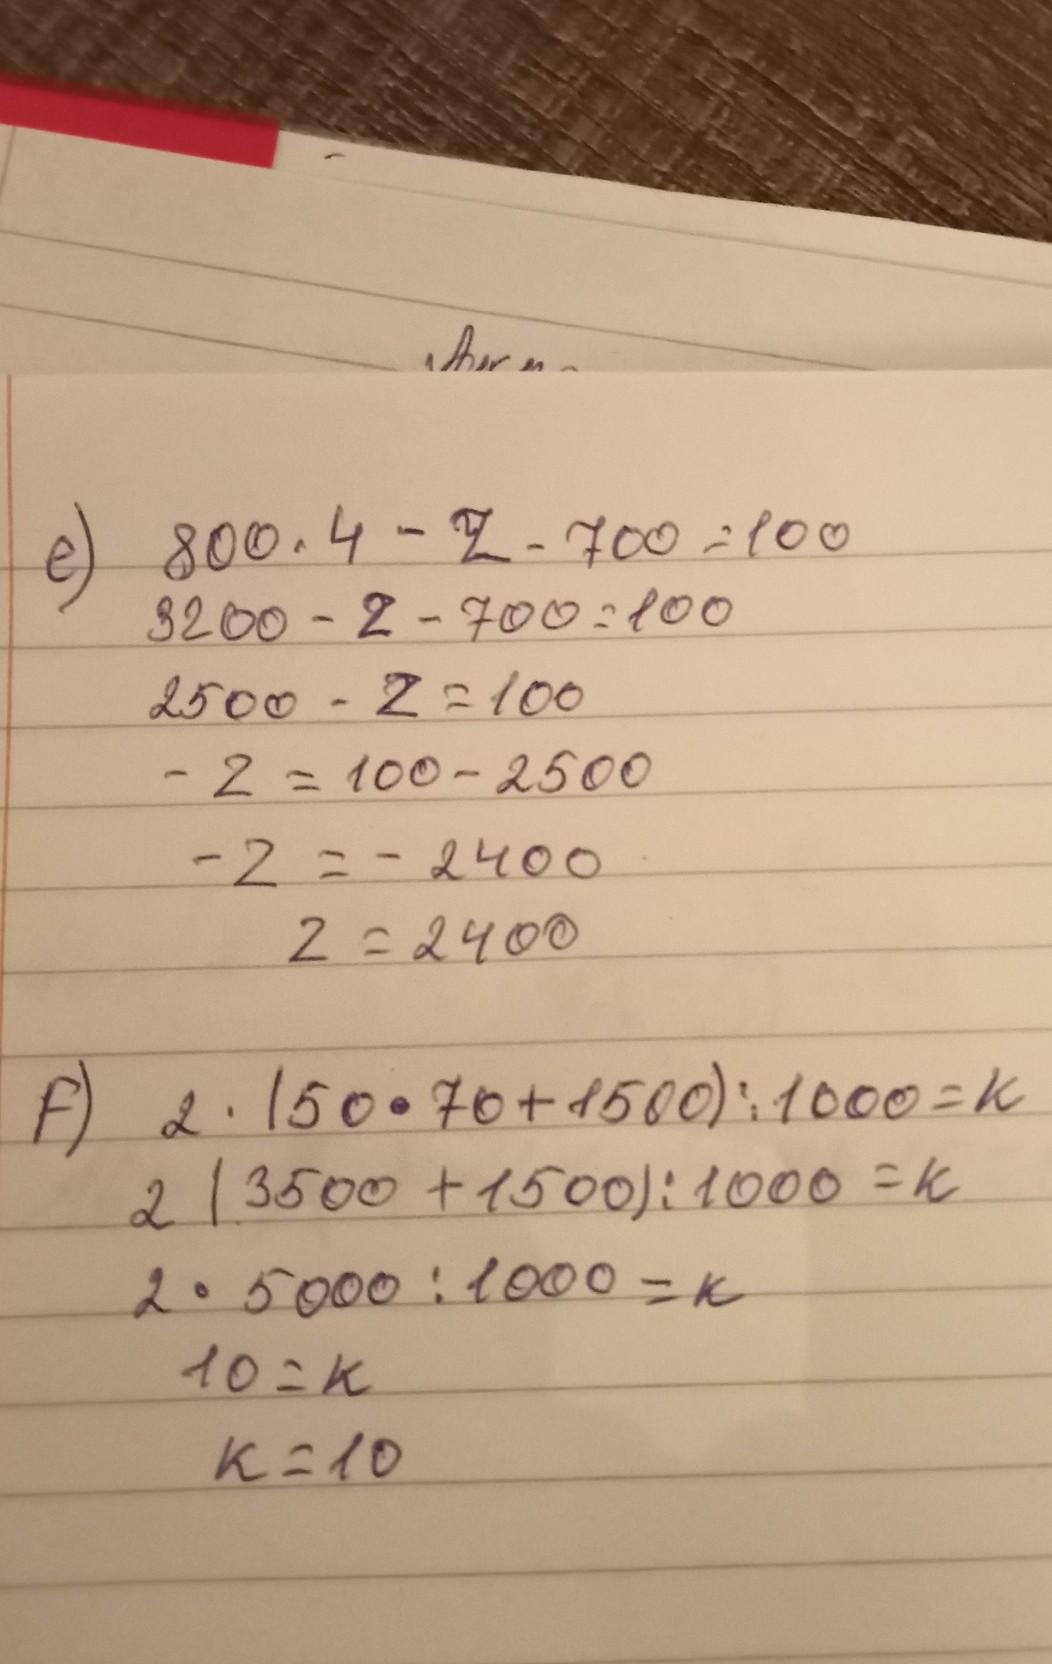 e) 800 · 4 - Z - 700 = 100
3200 - Z - 700 = 100
2500 - Z = 100
- Z = 100 - 2500
- Z = - 2400
Z = 2400
F) 2 · (50 · 70 + 1500) : 1000 = K
2 (3500 + 1500) : 1000 = K
2 · 5000 : 1000 = K
10 = K
K = 10